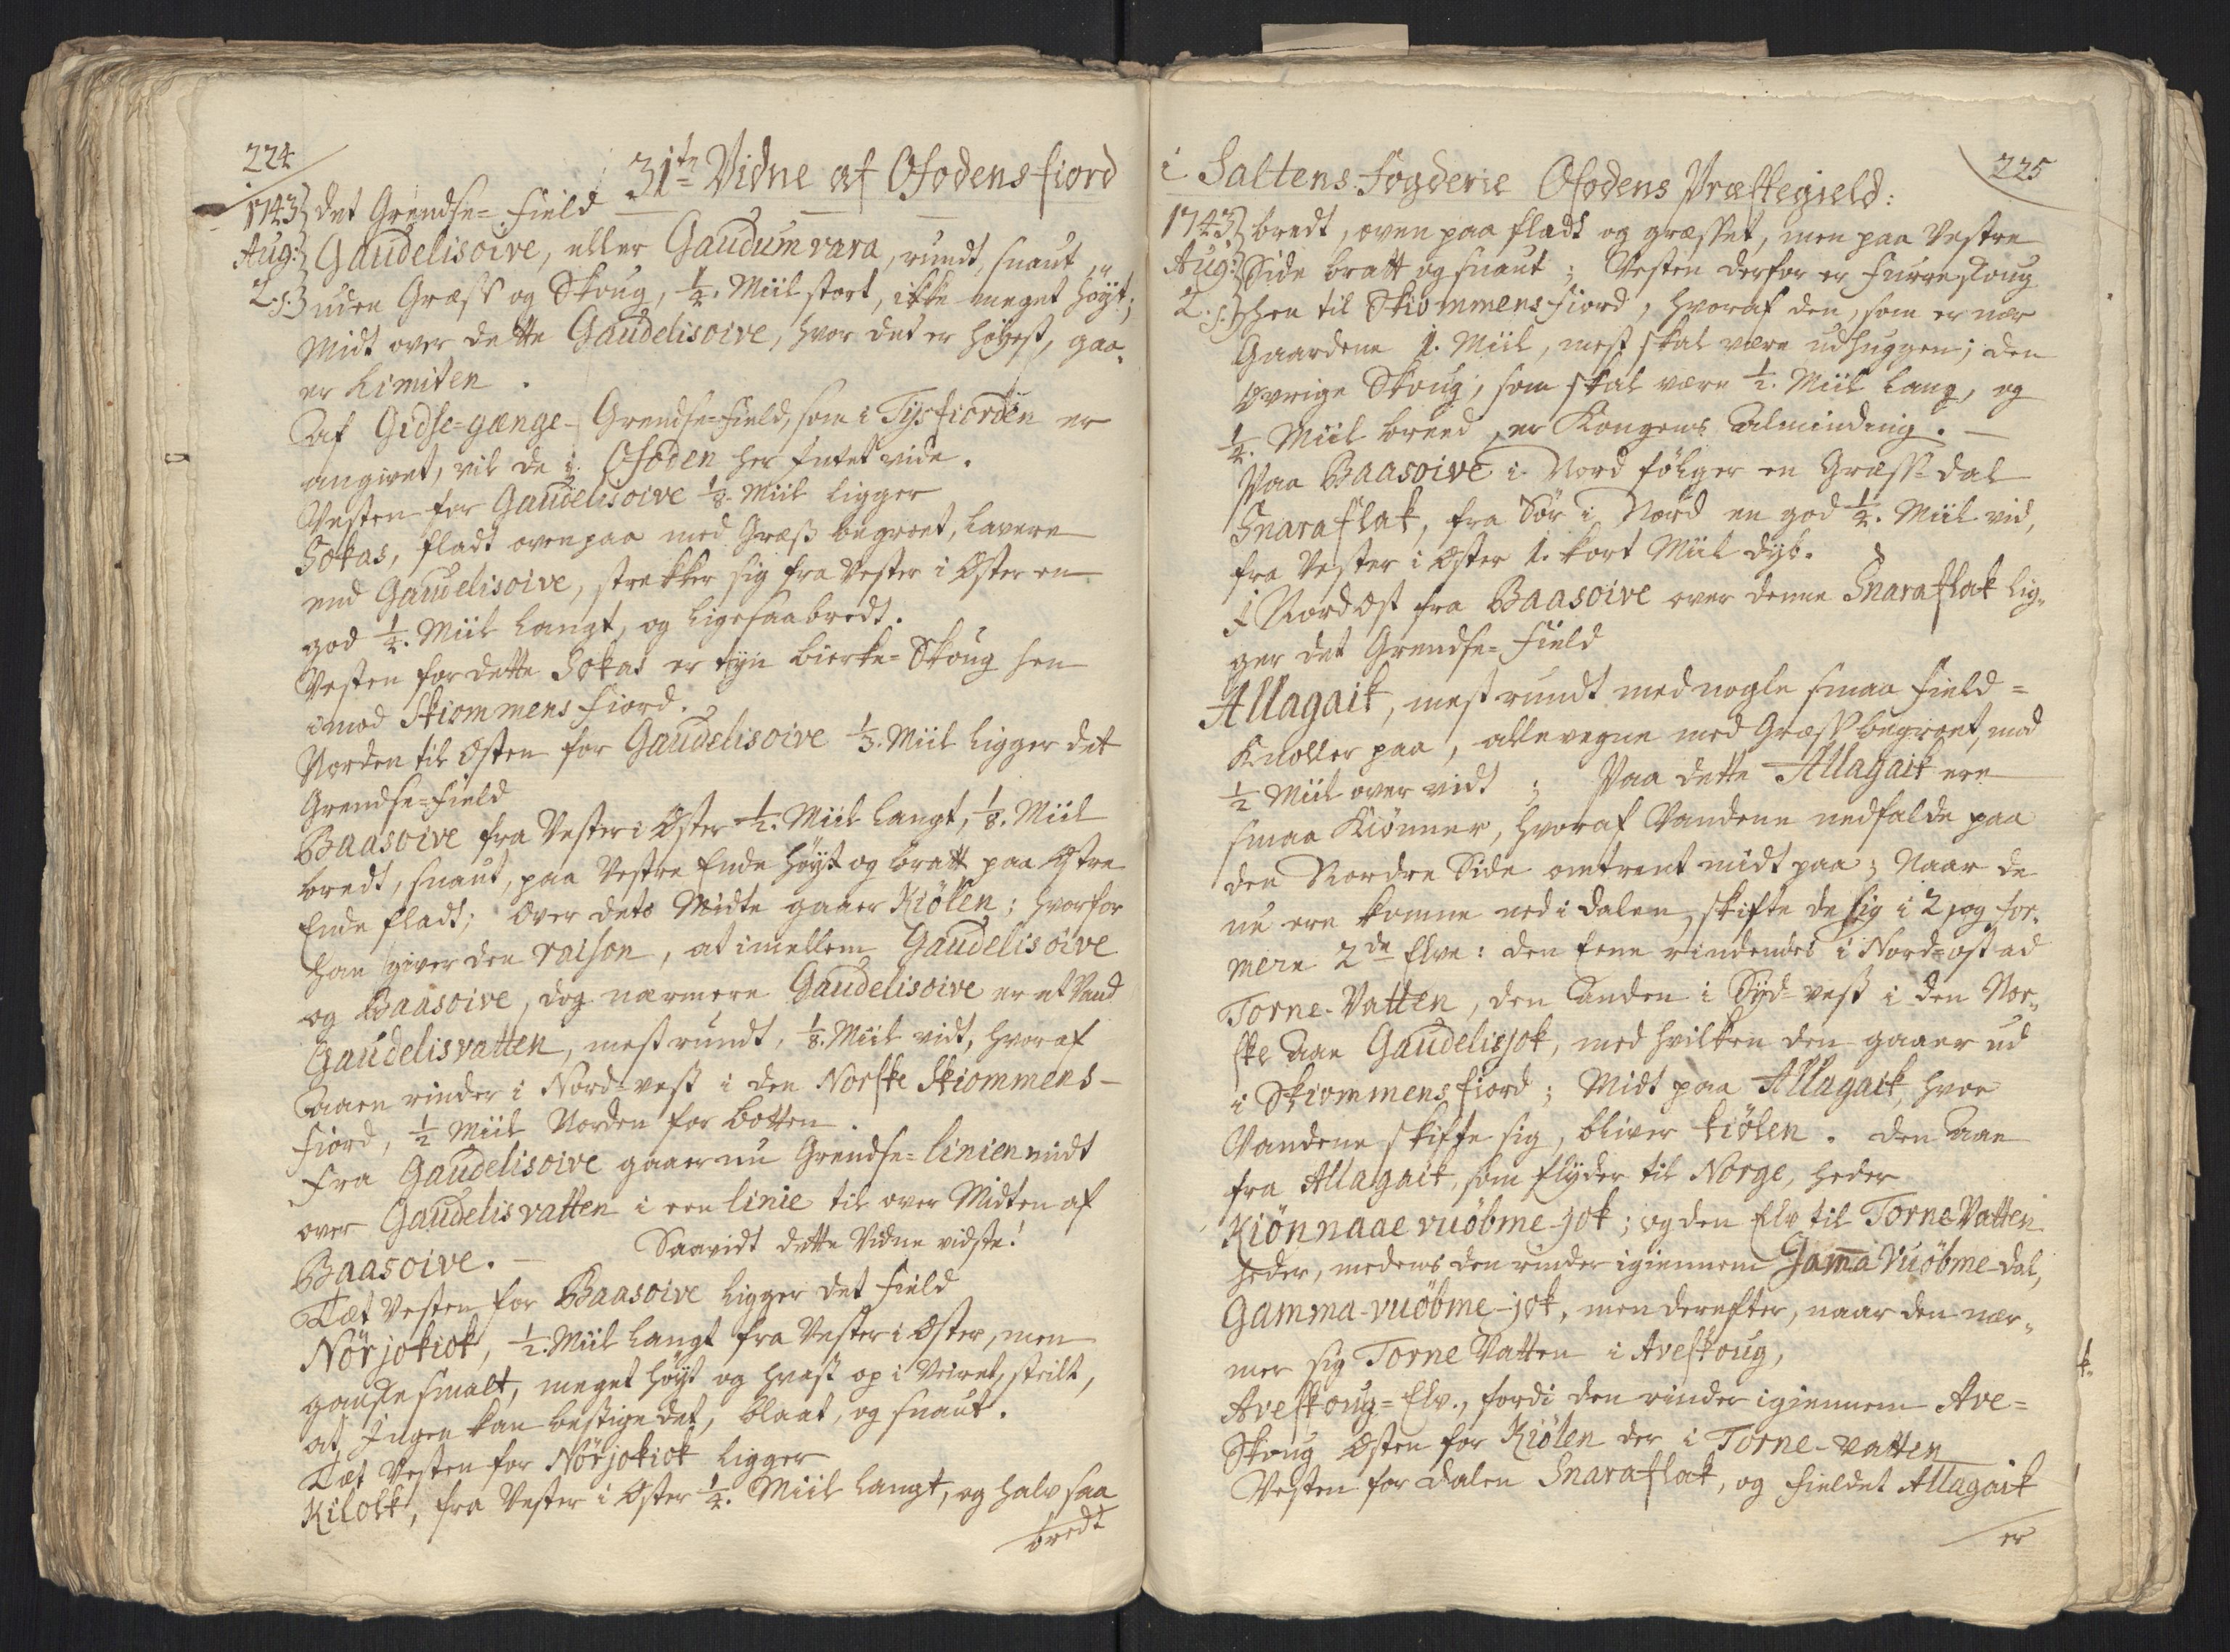 224
31te Vidne af Ofodens fiord
1743 det Grendse-Field
Aug: Gaudelisoive, eller Gaudumvara, rundt, snaut,
2.s. uden Græss og Skoug, 1/2. Miil stort, ikke meget høyt;
Midt over dette Gaudelisoive, hvor det er høyest, gaa-
er Limiten.
Af Gidse-gænge-Grendse-Field, som i Tysfiorden er
angivet, vil de i Ofoden her Intet vide.
Vesten for Gaudelisoive 1/8. Miil ligger
Sokas, fladt oven paa med Græs begroet, lavere
end Gaudelisoive, strekker sig fra Vester i Øster en
god 1/2. Miil langt, og ligesaa bredt.
Vesten for dette Sokas er tyn bierke-Skoug hen
imod Skiommens Fiord.
Norden til Østen for Gaudelisoive 1/3. Miil ligger det
Grendse-Field
Baasoive fra Vester i Øster 1/2. Miil langt, 1/8. Miil
bredt, snaut, paa Vestre Ende høyt og bratt paa Østre
Ende fladt; Over dets Midte gaaer Kiölen; hvorfor
han giver den raison, at imellem Gaudelisoive
og Baasoive, dog nærmere Gaudelisoive er et Vand
Gaudelisvatten, mest rundt, 1/8. Miil vidt, hvoraf
Aaen rinder i Nord-vest i den Norske Skiommens-
Fiord, 1/2 Miil Norden for botten.
Fra Gaudelisoive gaaer nu Grendse-linien midt
over Gaudelisvatten i een linie til over Midten af
Baasoive. — Saavidt dette Vidne vidste!
Tæt Vesten for Baasoive ligger det Field
Nörjokiok, 1/2. Miil langt fra Vester i Øster, men
ganske smalt, meget høyt og hvast op i Veiret, steilt,
at Ingen kan bestige det, blaat, og snaut.
Tæt Vesten for Nörjokiok ligger
Kilolk, fra Vester i Øster 1/2. Miil langt, og halv saa
bredt
i Saltens Fogderie Ofodens Præstegield:
225
1743 bredt, oven paa fladt og græsset, men paa Vestre
Aug: Side bratt og snaut; Vesten derfor er Furreskoug
2.s. hen til Skiommens Fiord, hvoraf den, som er nær
Gaardene 1. Miil, mest skal være udhuggen; den
øvrige Skoug, som skal være 1/2. Miil lang, og
1/4. Miil breed, er Kongens Alminding. —
Paa Baasoive i Nord følger en Græss-dal
Snaraflak, fra Sør i Nord en god 1/2. Miil vid,
fra Vester i Øster 1. kort Miil dyb.
I Nordøst fra Baasoive over denne Snaraflak lig-
ger det Grendse-Field
Allagaik, mest rundt med nogle smaa Field-
Knoller paa, allevegne med Græss begroet, mod
1/2 Miil over vidt; Paa dette Allagaik ere
smaa Kiønner, hvoraf Vandene nedfalde paa
den Nordre Side omtrent midt paa; Naar de
nu ere komne ned i dalen, skifte de sig i 2, og for-
mere 2de Elve: den Eene rindendes i Nord-ost ad
Torne-Vatten, den Anden i Syd-vest i den Nor-
ske Aae Gaudelisjok, med hvilken den gaaer ud
i Skiommens fiord; Midt paa Allagaik, hvor
Vandene skifte sig, bliver kiölen. Den Aae
fra Allagaik, som flyder til Norge, heder
Kiönnaae vuöbme-jok; og den Elv til Torne Vatten
heder, medens den rinder igiennem Gam̄a Vuöbme-dal,
Gamma-vuöbme-jok, men derefter, naar den nær-
mer sig Torne Vatten i Aveskoug,
Aveskoug-Elv, fordi den rinder igiennem Ave-
Skoug Østen for Kiölen der i Torne-vatten
Vesten for dalen Snaraflak, og Fieldet Allagaik
er